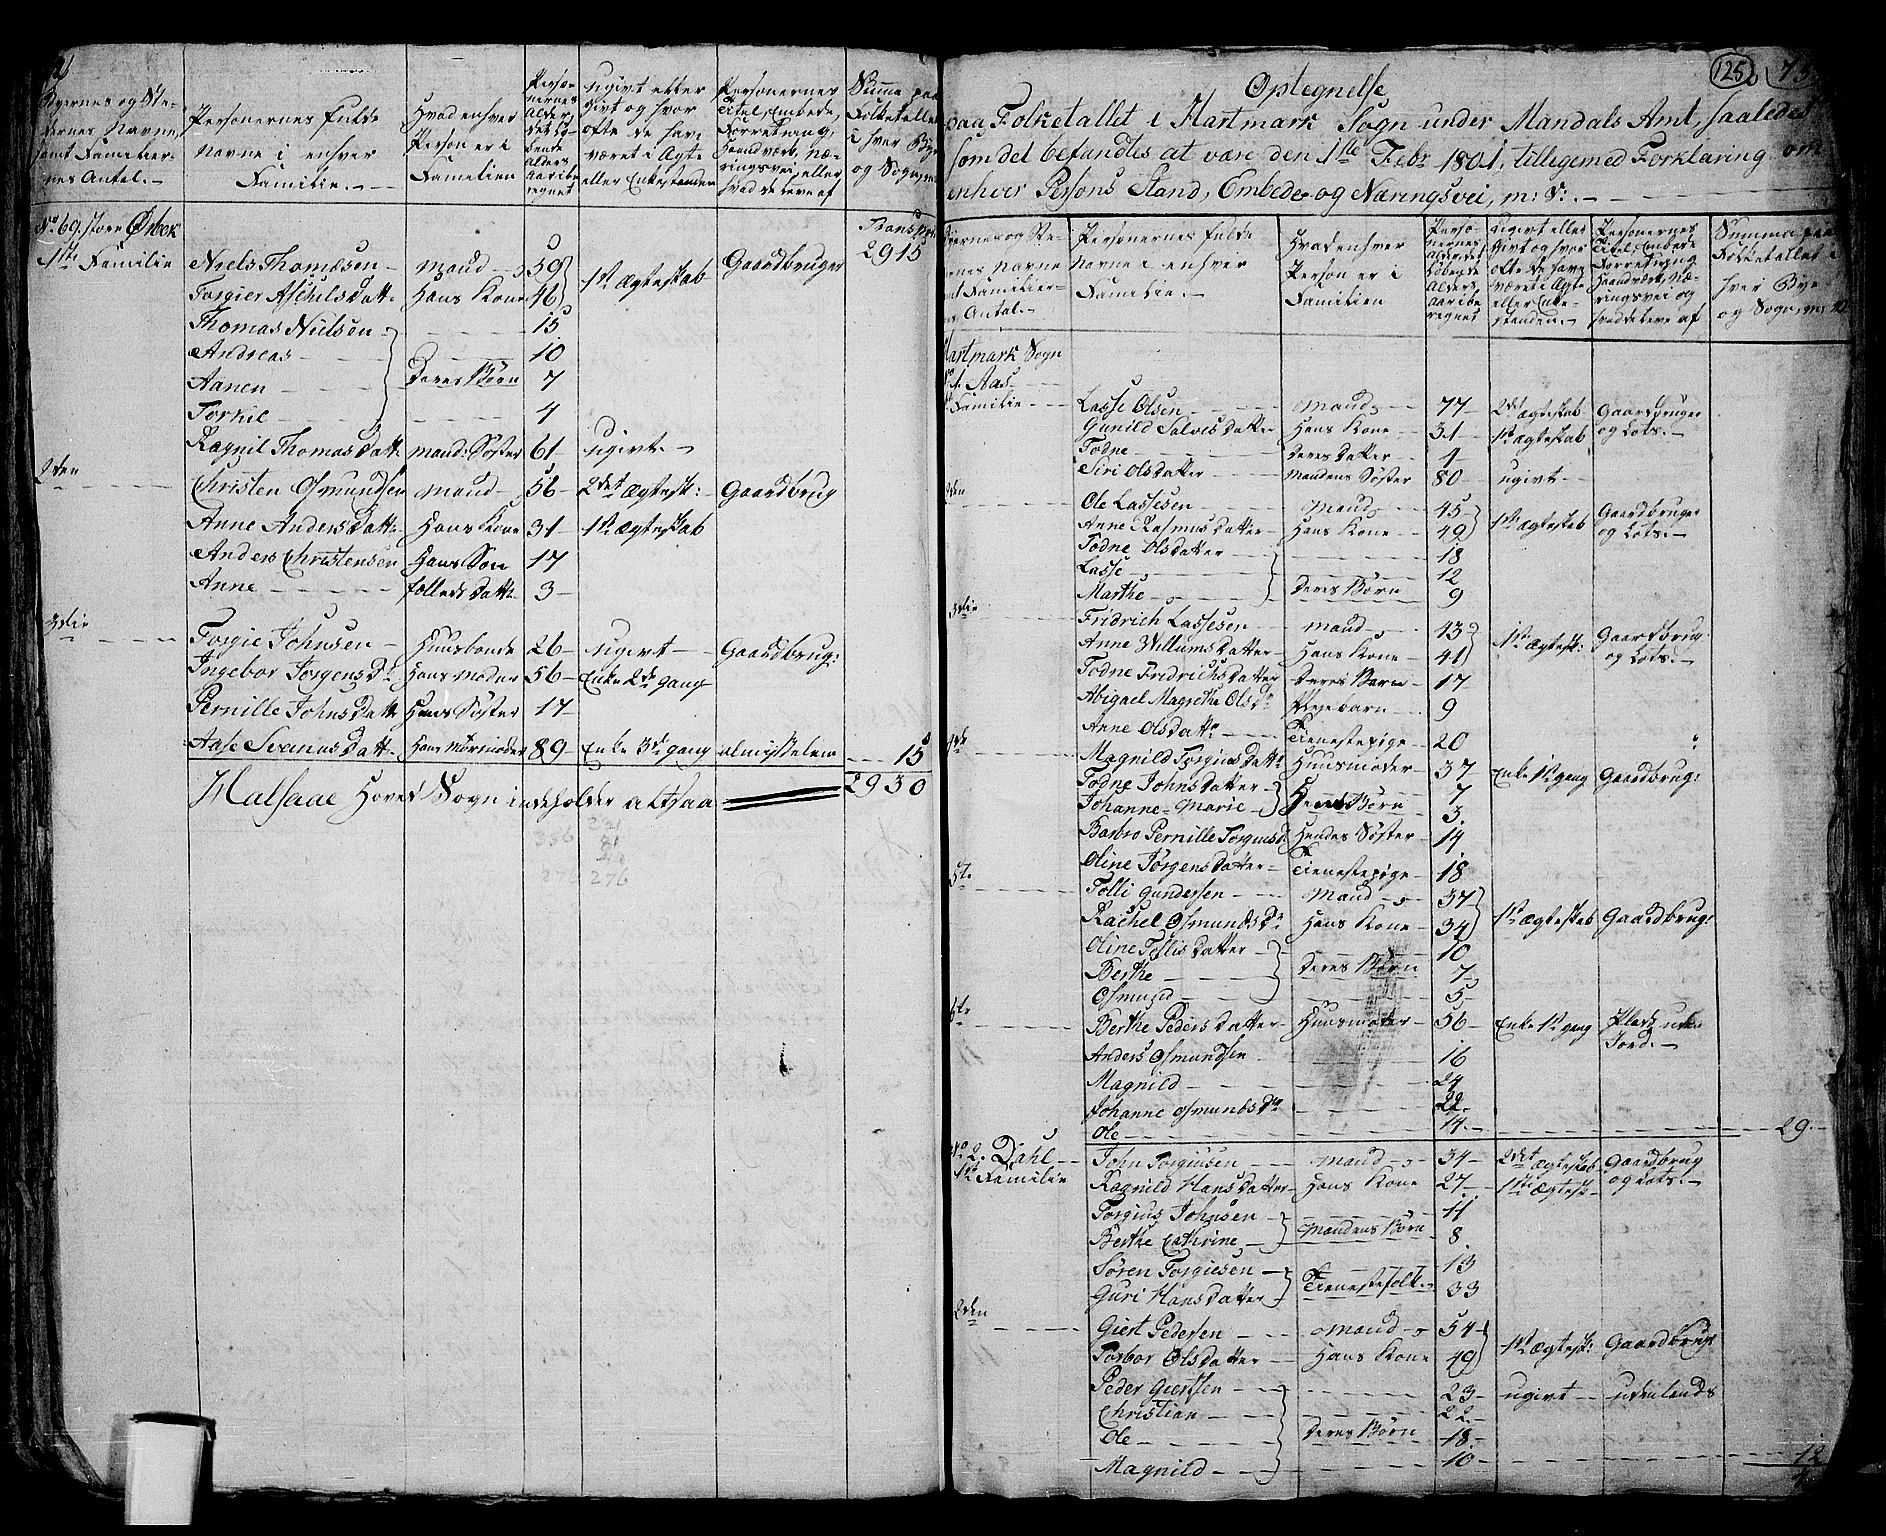 Byernes og Ste-
dernes Navne,
samt Familier-
nes Antal.-
Personernes fulde
Navne i enhver
Familie.-
Hvad enhver
Person er i
Familien
Perso-
nernes
Alder,
det lø-
bende
Alders
aar ibe-
regnet
ugivt eller
givt og hvor
ofte de har
været i Ægte
eller Enkestanden
Personernes
Titel, Embede,
Forretning,
Haandværk, Næ-
ringsvei, eller
hvad de leve af
Summa paa
Folketallet
i hver Bye
og Sogn,
No 69. store Øsbek
Transp:
2915
1ste Familie Niels Thomæsen - Mand - 59 1ste Ægteskab Gaardbruger
Torgier Aschilsdatt: Hans Kone 46
Thomas Nielsen - 15
Andreas - 10
Aanen - Deres Børn 7
Torkil - 4
Ragnil Thomasdatt: mands Søster 61 - ugivt. -
2den Christen Osmundsen Mand - 56 - 2det Ægtesk: Gaardbrug
Anne Andersdatt: Hans Kone 31 - 1ste Ægteskab
Anders Christensen Hans Søn 17
Anne - fælleds Datt: 3 -
3die Torgie Johnsen - Huusbonde 26 - ugivt - Gaardbrug:
Ingebor Torgensd: Hans Moder 56 - Enke 2den gang
Pernille Johnsdatt: Hans Søster 17 -
Aase Svenusdatt: Hans Mormoder 89 - Enke 3die gang almisselem 15
Halsaae Hoved Sogn indeholder altsaa 2930
125
Optegnelse
paa Folketallet i Hartmark Sogn under Mandals Amt, saaledes
som det befandtes at være den 1ste Febr 1801, tilligemed Forklaring om
enhver Persons Stand, Embede og Næringsvei, m: v: -
Personernes fulde
Navne i enhver
Familie. -
Hvad enhver
Person er i
Familien
Perso-
nernes
Alder det
løbende
Alders
aar ibe-
regnet
Ugivt eller
Givt og hvor
ofte de har
været i Ægte
eller Enke-
standen. -
Personernes
Titel, Embede
Forretning
Haandværk, Næ-
ringsvei og
hvad de leve af
Summa paa
Folketallet i
hver Bye
og Sogn,
Hartmark Sogn
No 1. Aas -
Familie - Lasse Olsen - Mand - 77 - 2det Ægteskab Gaardbruger
Gunild Salvesdatter Hans Kone - 31 - 1ste Ægteskab og Lots. -
Todne - Deres Datter - 1
Siri Olsdatter - Mandens Søster 80 - ugivt -
2den Ole Lassesen - Mand - 45 1ste Ægteskab Gaardbruger
Anne Rasmusdatter Hans Kone - 49 og Lots. -
Todne Olsdatter - 18
Lasse - 12
Marthe - Deres Børn 9
3die Fridrich Lassesen - Mand - 43 1ste Ægtesk: Gaardbrug
Anne Willumsdatter - Hans Kone - 41 og Lots. -
Todne Fridrichsdatter Deres Barn - 17
Abigael Magretha Olsdr Plejebarn - 9
Anne Olsdattr - Tienestepige - 20
4de Magnild Torgiusdattr Huusmoder - 37 - Enke 1ste gang Gaardbrug:
Todne Johnsdatter - 7
Johanne Marie - Hendes Børn 3
Barbro Pernille Torgiusd: Hendes Søster - 14
Oline Jørgensdatter - Tienestepige - 18
5te Tolli Gundersen - Mand - 37 1ste Ægteskab Gaardbrug:
Rachel Osmundsdr Hans Kone - 34
Oline Tollisdatter - 10
Berthe - Deres Børn 7
Osmund - 5
6te Berthe Pedersdatter - Huusmoder - 56 - Enke 1ste gang Plads uden
Jord. -
Anders Osmundsen - 16
Magnild - 24
Johanne Osmundsdr - 22
Ole - 14 - 29 -
No 2. Dahl - John Torgiusen - Mand - 34 - 2det Ægteskab - Gaardbrug
1ste Familie Ragnild Hansdatter - Hans Kone 27 - 1ste Ægtesk - og Lots. -
Torgius Johnsen - 11
Berthe Cathrine - Mandens Børn 8
Søren Torgiesen - 13
Guri Hansdatter - Tienestefolk - 33
2den Giert Pedersen - Mand - 54 - 1ste Ægtesk: Gaardbrug:
Torbor Olsdatter - Hans Kone 49
Peder Giertsen - 23 - ugivt - udenlands
Christian - 22 -
Ole - Deres Børn 18 -
Magnild - 10 - 12